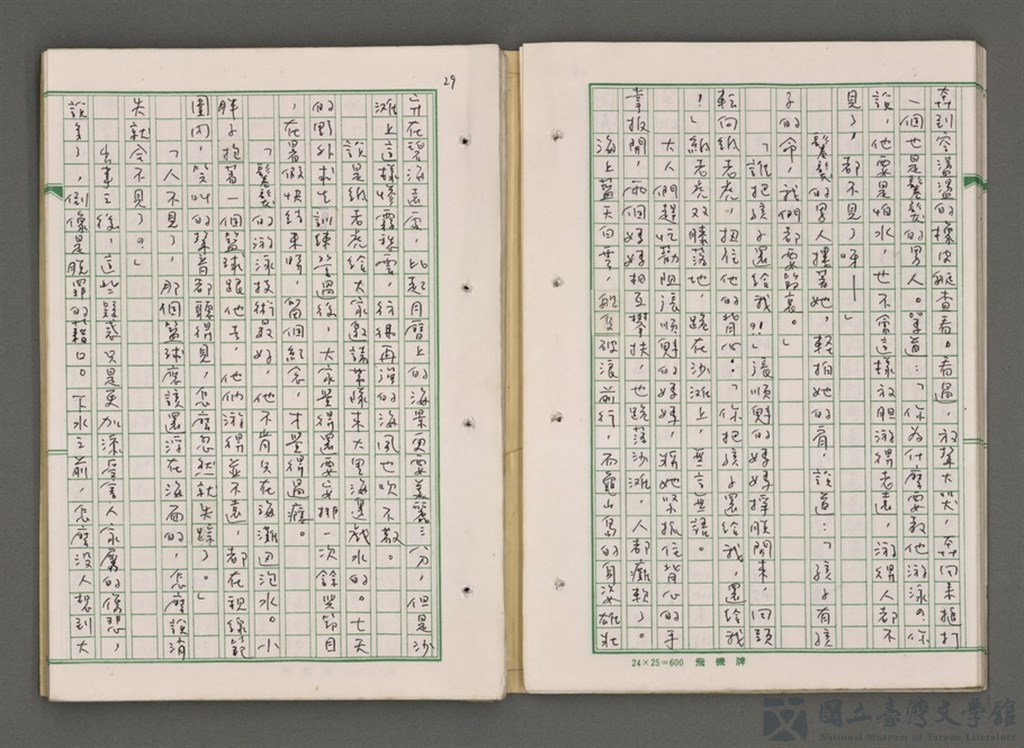 奔到空盪盪的橡皮艇查看。看過，放聲大哭，奔回來搥打
一個也是鬈髮的男人。罵道：「你為什麼要教他游泳？你
說，他要是怕水，也不會這樣放胆游得老遠，游得人都不
見了，都不見了呀——」
鬈髮的男人摟著她，輕拍她的肩，說道：「孩子有孩
子的命，我們都要節哀。」
「誰把孩子還給我?!」張順魁的媽媽掙脫開來，回頭
轉向紙老虎，扭住他的背心：「你把孩子還給我，還給我
！」紙老虎双膝落地，跪在沙灘上，無言無語。
大人們趕忙勸阻張順魁的媽媽，將她緊抓住背心的手
拿扳開，兩個媽媽相互攀扶，也跪落沙灘，人都癱軟了。
海上藍天白雲，船隻破浪前行，而龜山島的身姿雄壯
24×25=600 飛機牌
29
立在碧海遠處，比起月曆上的海景更要美麗三分，但是沙
灘上這樣慘霧愁雲，行得再強的海風也吹不散。
說是紙老虎給大家邀請葉隊來大里海邊戲水的。七天
的野外求生訓練營過後，大家覺得還要安排一次餘興節目
，在暑假快結束時，留個紀念，才覺得過癮。
「鬈髮的游泳技術最好，他不肯只在海灘邊泡水。小
胖子抱著一個籃球跟他去，他們游得並不遠，都在視線範
圍內，笑叫的聲音都聽得見，怎麼忽然就失踪了。」
「人不見了，那個籃球應該還浮在海面的，怎麼說消
失就會不見了？」
出事之後，這些疑惑只是更加深受害人家屬的傷悲，
說多了，倒像是脫罪的藉口。下水之前，怎麼沒人想到大
國立臺灣文學館
National Museum of Taiwan Literature